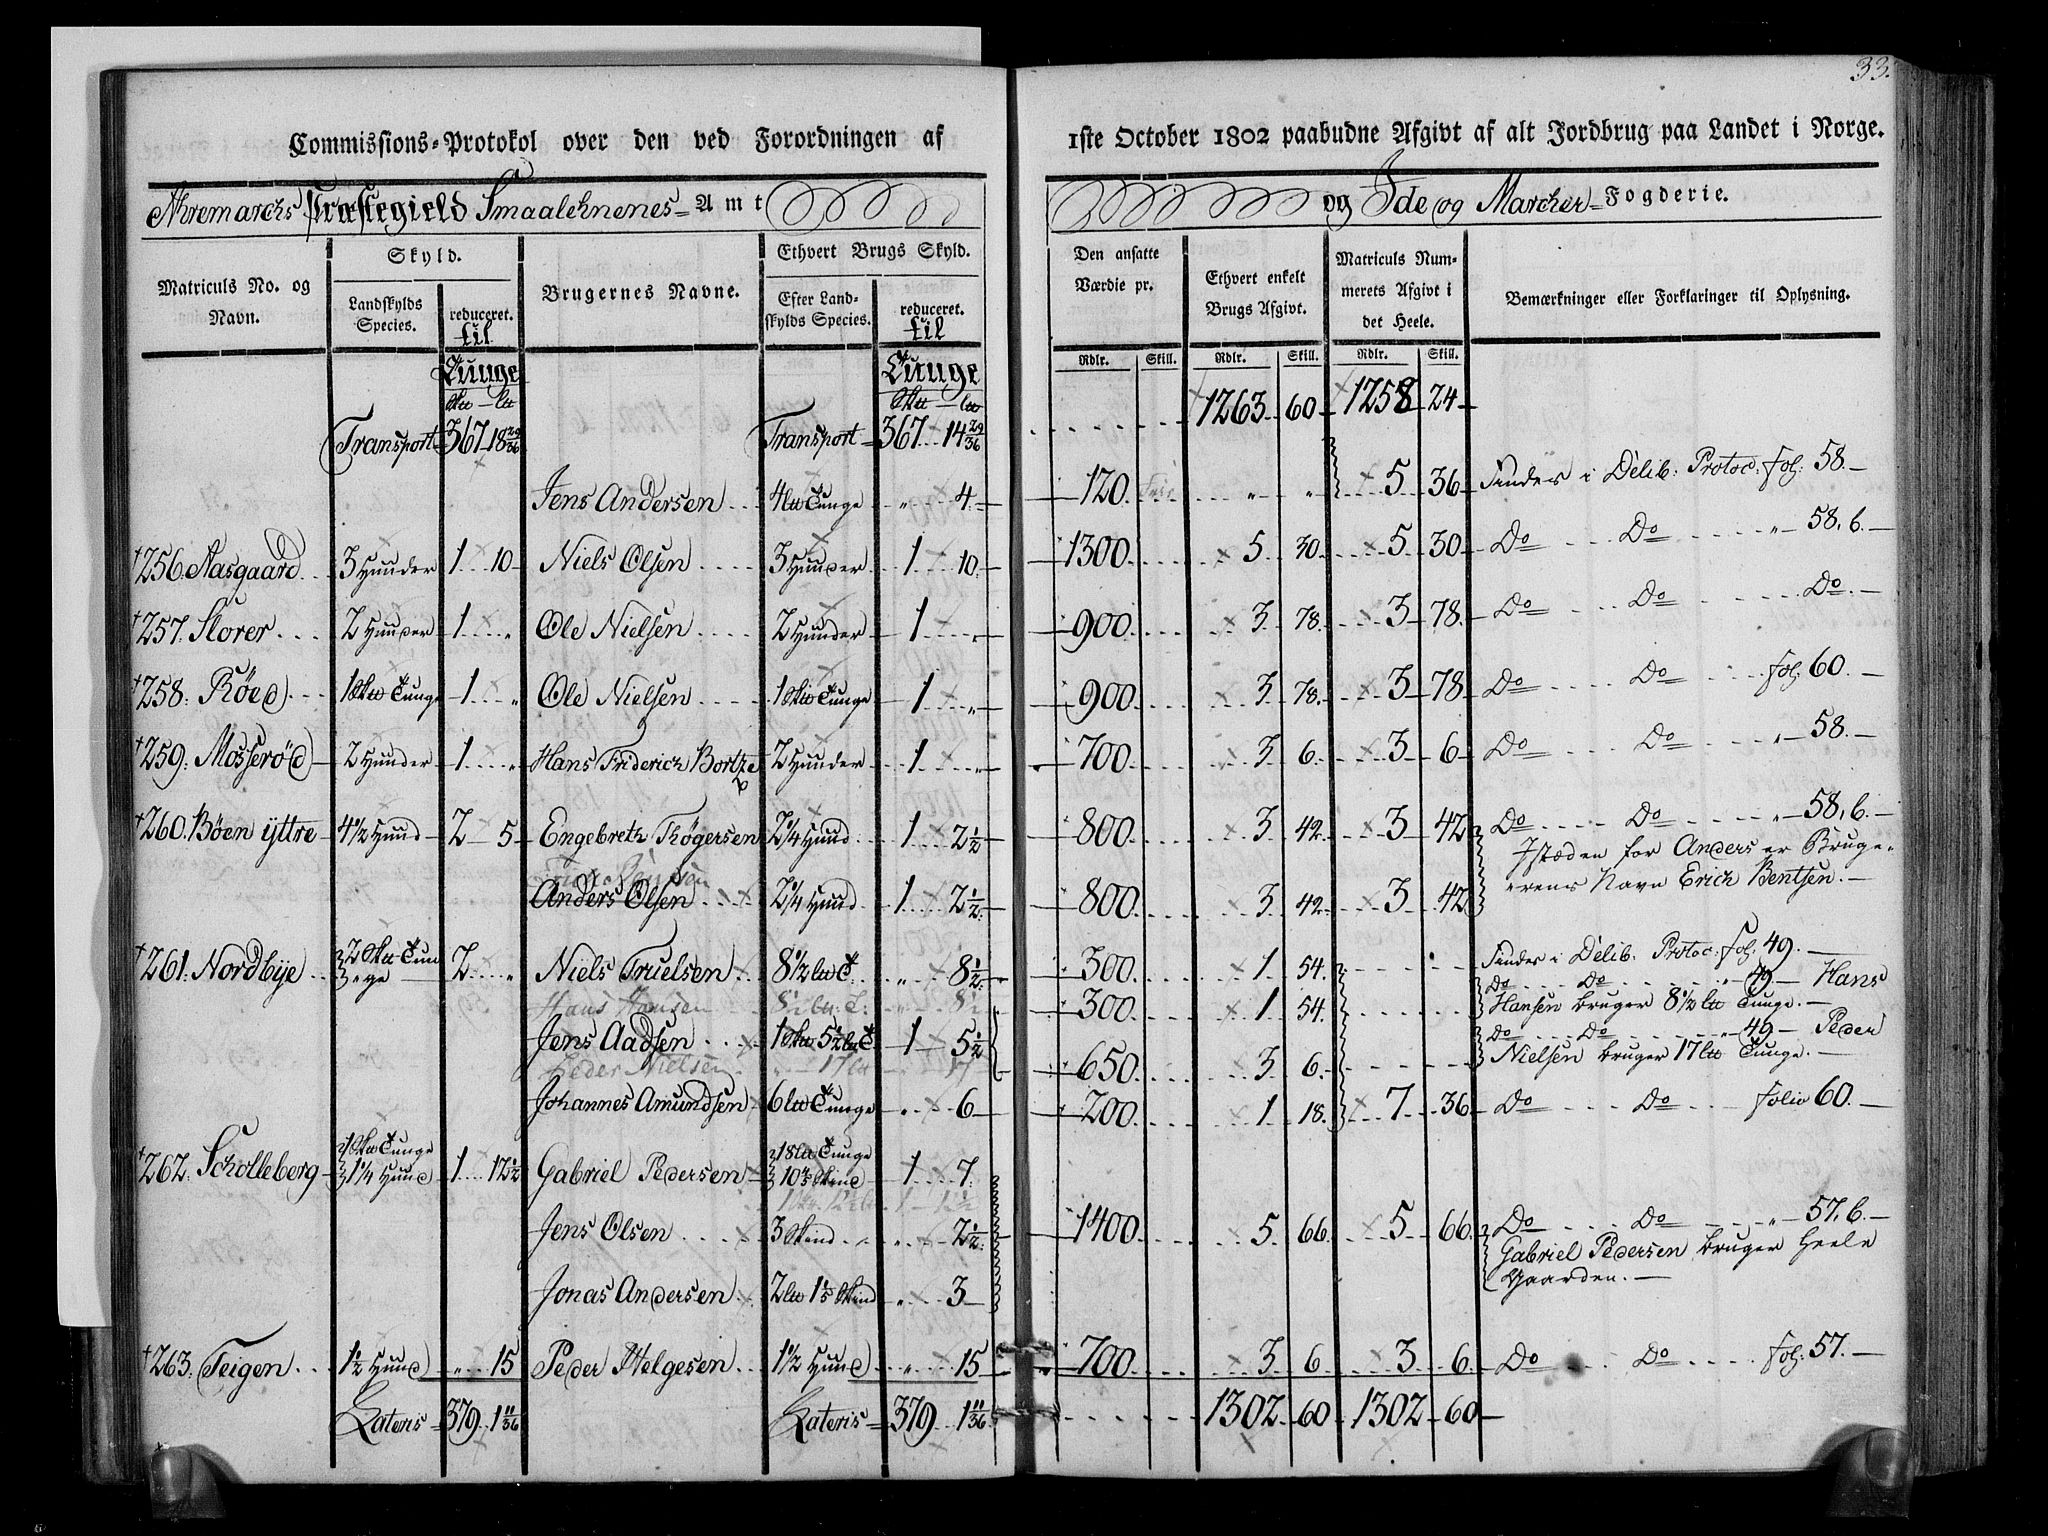 33.
Commissions-Protokol over den ved Forordningen af 1ste October 1802 paabudne Afgivt af alt Jordbrug paa Landet i Norge.
Aremarchs Præstegield Smaalehnenes Amt og Ide og Marcher Fogderie.
Matriculs No. og Navn.
Skyld.
Landskylds Species.
reduceret. til Tunge
Skt - lt
Brugernes Navne.
Ethvert Brugs Skyld.
Efter Landskylds Species.
reduceret. til Tunge
Skt - lt
Den ansatte Værdie pr.
Ethvert enkelt Brugs Afgivt.
Matriculs Nummerets Afgivt i det Heele.
Bemærkninger eller Forklaringer til Oplysning.
Rdlr. Skill. Rdlr. Skill. Rdlr. Skill.
Transport 367 18 29/36 Transport 367 14 29/36 1263 60 1258 24
Jens Andersen 4 lt Tunge „ 4 120 „ „ 5 36 Findes i Delib: Protoc: fol: 58.
†256. Aasgaard 3 Hunder 1 10 Niels Olsen 3 Hunder 1 10 1300 5 30 5 30 Do Do „ 58. b.
†257. Storer 2 Hunder 1 „ Ole Nielsen 2 Hunder 1 „ 900 3 78 3 78 Do Do Do.
†258. Röed 1 Skt Tunge 1 „ Ole Nielsen 1 Skt Tunge 1 „ 900 3 78 3 78 Do Do fol: 60.
†259. Mosseröd 2 Hunder 1 „ Hans Friderich Bortze 2 Hunder 1 „ 700 3 6 3 6 Do Do „ 58.
†260. Böen yttre 4 1/2 Hund 2 5 Engebretz Rögersen 2 1/4 Hund 1 2 1/2 800 3 42 3 42 Do Do „ 58. b.
Istæden for Anders er Bruge-
Anders Olsen 2 1/4 Hund 1 2 1/2 800 3 42 3 42 rens Navn Erich Bentsen.
†261. Nordbye 2 Skt Tunge 2 „ Niels Truelsen 8 1/2 lt T „ 8 1/2 300 1 54 Findes i Delib. Protoc: fol: 49.
Hans Hansen 8 1/2 lt: T: „ 8 1/2 300 1 54 Do Do „ 49 Hans
Hansen bruger 8 1/2 lt Tunge.
Jens Aadsen 1 Skt 5 1/2 lt T 1 5 1/2 Do Do „ 49 Peder
Peder Nielsen „ 17 lt 17 650 3 6 Nielsen bruger 17 lt Tunge.
Johannes Amundsen 6 lt Tunge „ 6 200 1 18 7 36 Do Do folio 60.
†262. Scholleberg 1 Skt Tunge 1 1/4 Hund 1 12 1/2 Gabriel Pedersen 18 lt Tunge 10 4/5 Skind 1 7
1 Skt. 12 1/2 lt 1 12 1/2
Jens Olsen 3 Skind „ 2 1/2 1400 5 66 5 66 Do Do „ 57. b.
Gabriel Pedersen bruger Heele
Gaarden.
Jonas Andersen 2 lt 1 1/5 Skind „ 3
†263. Teigen 1 1/2 Hund „ 15 Peder Helgesen 1 1/2 Hund „ 15 700 3 6 3 6 Do Do fol: 57.
Lateris 379 1 11/36 Lateris 379 1 11/36 1302 60 1302 60